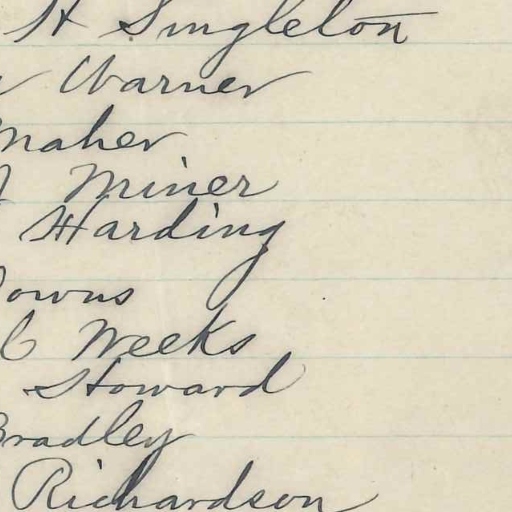 H Singleton
Warner
Maher
Miner
Harding
Downs
Weeks
Howard
Bradley
Richardson